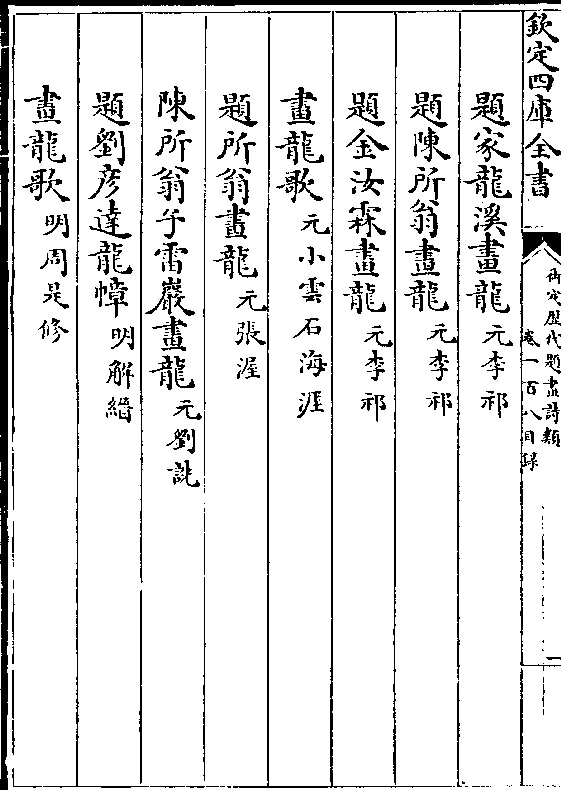 欽定四庫全書
御定歷代題畫詩類
卷一百八目録
一
題家龍溪畫龍元李祁
題陳所翁畫龍元李祁
題金汝霖畫龍元李祁
畫龍歌元小雲石海涯
題所翁畫龍元張渥
陳所翁子雷巖畫龍元劉詵
題劉彥達龍幛明解縉
畫龍歌明周是修